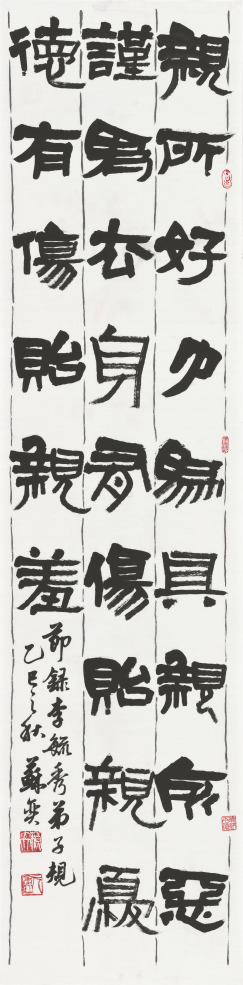 親所好力為具親所惡
謹為去身有傷貽親憂
德有傷貽親羞
節錄李毓秀弟子規
乙巳之秋蘇奕